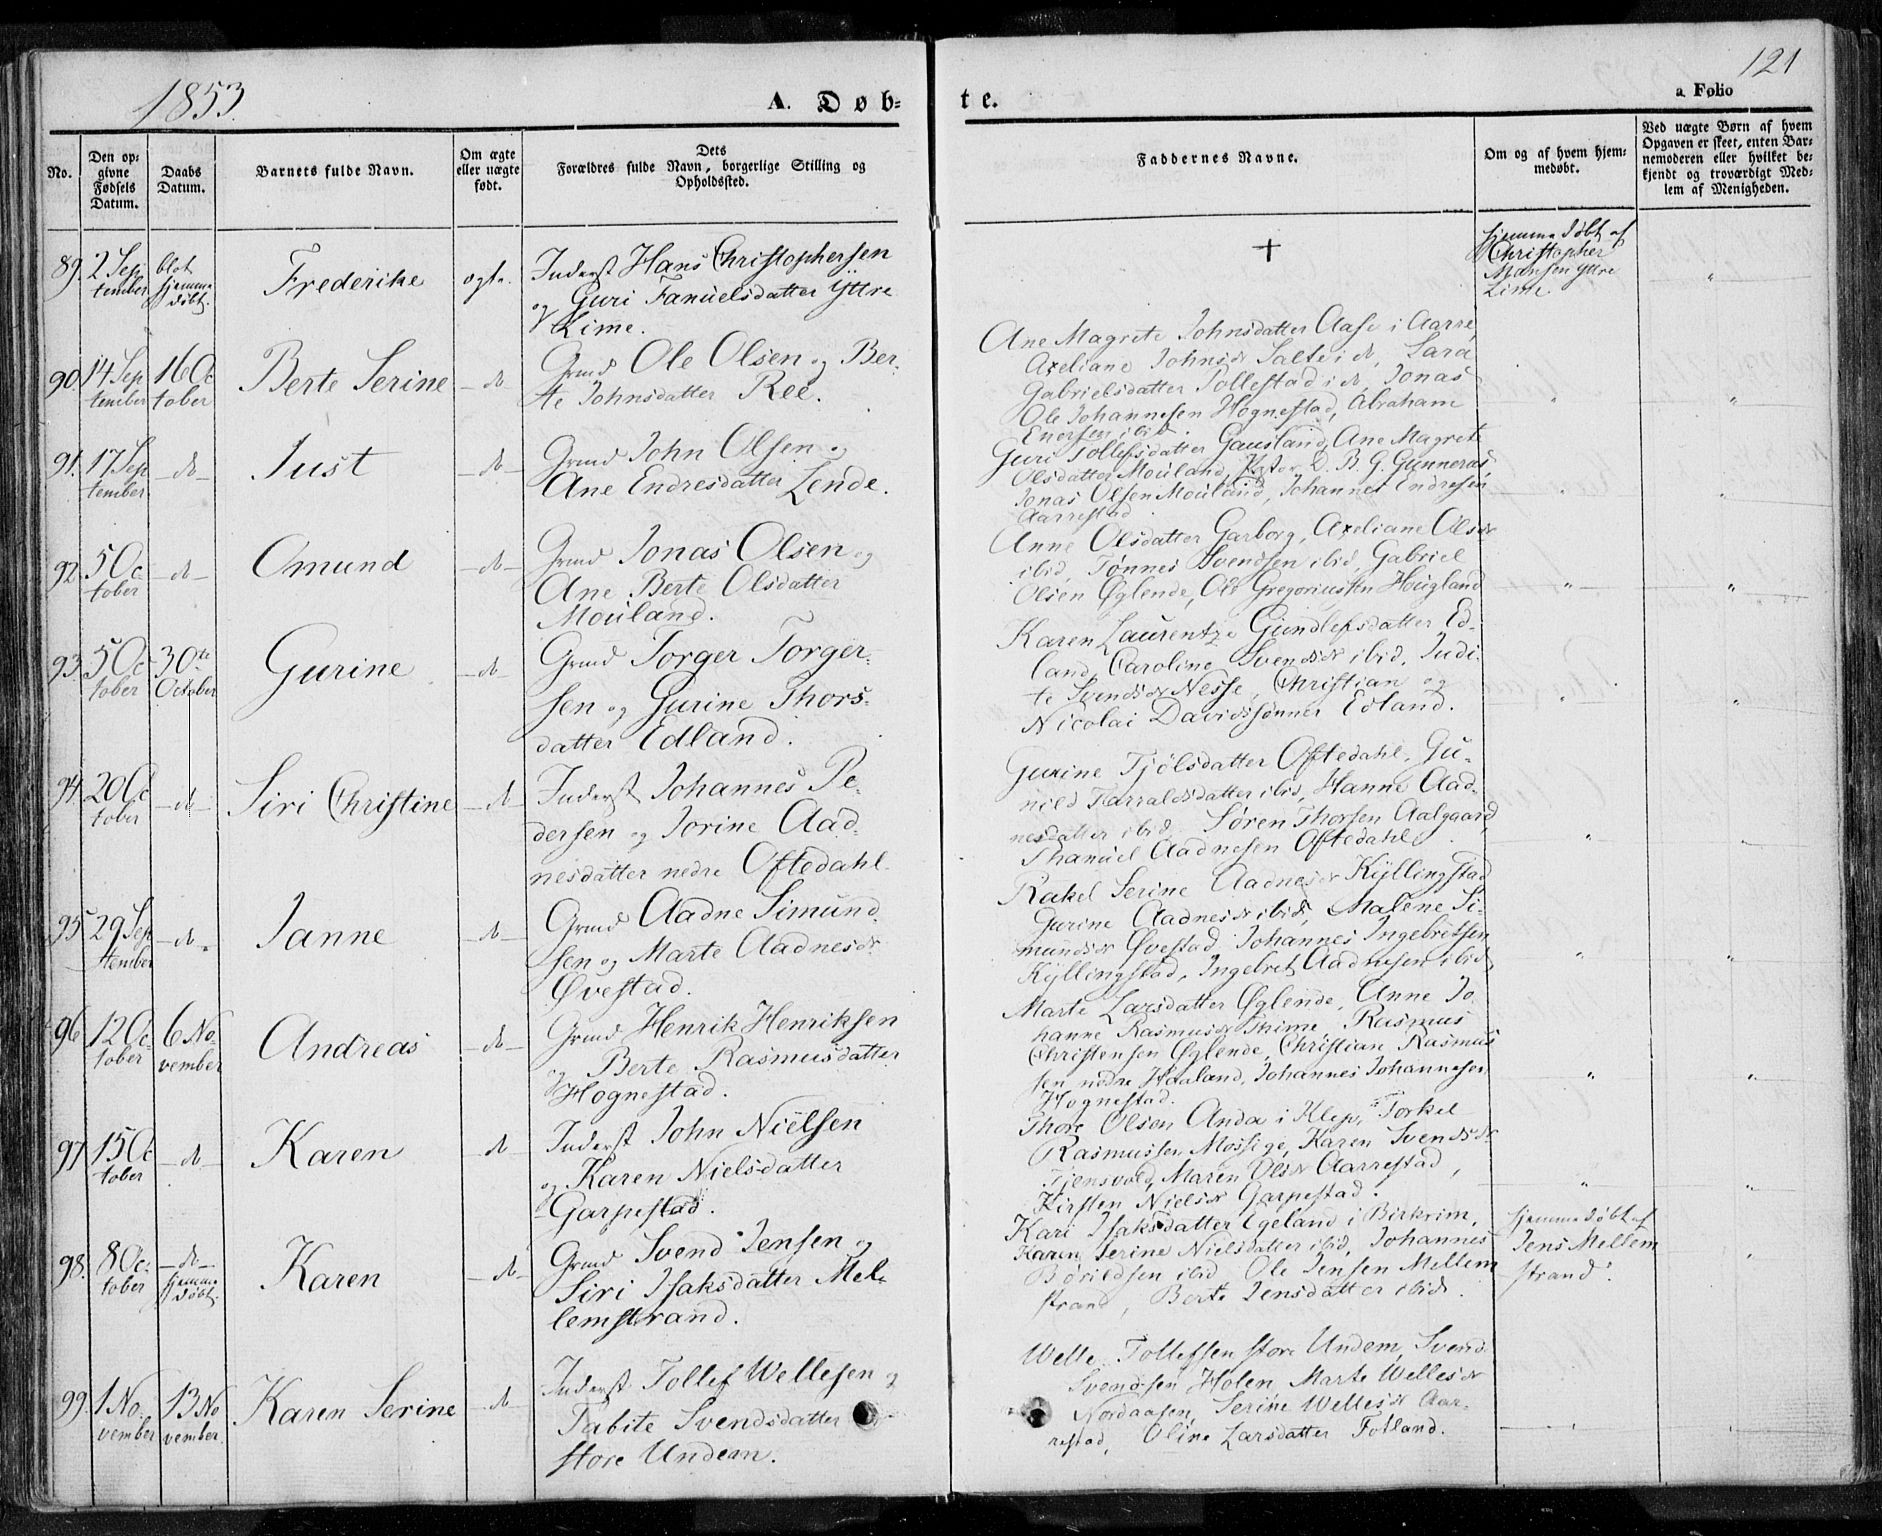 1853.
A. Døb-
te.
121
a. Folio
No.
Den op-
givne
Fødsels
Datum.
Daabs
Datum.
Barnets fulde Navn.
Om ægte
eller uægte
født.
Dets
Forældres fulde Navn, borgerlige Stilling og
Opholdssted.
Faddernes Navne.
Om og af hvem hjem-
medøbt.
Ved uægte Børn af hvem
Opgaven er skeet, enten Bar-
nemoderen eller hvilket be-
kjendt og troværdigt Med-
lem af Menigheden.
89. 2 Sep
tember
blot
hjemme
døbt.
Frederike
ægte
Inderst Hans Christophersen
og Guri Fanuelsdatter Yttre
Lime.
+
hjemmedøbt af
Christopher
Hansen Yttre
Lime
"
90. 14 Sep
tember
16 Oc
tober
Berte Serine
- do -
Grmd Ole Olsen og Ber-
te Johnsdatter Ree.
Ane Magrete Johnsdatter Aase i Aarre,
Axeliane Johnsdr Salte i do, Sara
Gabrielsdatter Pollestad i do, Jonas
Ole Johannesen Hognestad, Abraham
Enersen ibid.
" "
91. 17 Sep
tember
- do -
Just
- do -
Grmd John Olsen og
Ane Endresdatter Lende.
Guri Tollefsdatter Gausland, Ane Magrete
Olsdatter Mouland, D. B. G. Gunneras
Jonas Olsen Mouland, Johannes Endresen
Aarrestad
" "
92. 5 Oc
tober
- do -
Omund
- do -
Grmd Jonas Olsen og
Ane Berte Olsdatter
Mouland.
Anne Olsdatter Garborg, Axeliane Olsdr
ibid, Tønnes Svendsen ibid, Gabriel
Olsen Øglende, Ole Gregoriussen Hougland
" "
93. 5 Oc
tober
30te
October
Gurine
- do -
Grmd Torger Torger-
sen og Gurine Thors-
datter Edland.
Karen Laurentze Gundlefsdatter Ed-
land, Caroline Svendsdr ibid, Judi-
te Svendsdr Nesse, Christian og
Nicolai Davidssønner Edland.
" "
94. 20 Oc
tober
- do -
Siri Christine
- do -
Inderst Johannes Pe-
dersen og Jorine Aad-
nesdatter nedre Oftedahl
Gurine Tjølsdatter Oftedahl, Gu-
nild Harraldsdatter ibid, Hanne Aad-
nesdatter ibid, Søren Thorsen Aalgaard,
Thanuel Aadnesen Oftedahl.
" "
95. 29 Sep
tember
- do -
Janne
- do -
Grmd Aadne Simund
sen og Marte Aadnesdr
Øvestad.
Rakel Serine Aadnesdr Kyllingstad
Gurine Aadnesdr ibid, Malene Si-
mundsdr Øvestad, Johannes Ingebretsen
Kyllingstad, Ingebret Aadnesen ibid,
" "
96. 12 Oc
tober
6 No-
vember
Andreas
- do -
Grmd Henrik Henriksen
og Berte Rasmusdatter
Hognestad.
Marte Larsdatter Øglende, Anne Jo-
hanne Rasmusdr Thime, Rasmus
Christensen Øglende, Christian Rasmus
sen nedre Haaland, Johannes Johannesen
Hognestad.
" "
97. 15 Oc
tober
- do -
Karen
do
Inderst John Nielsen
og Karen Nielsdatter
Garpestad.
Thore Olsen Anda i Klep, Torkel
Rasmussen Mossige, Karen Svendsdr
Tjensvold, Maren Olsdr Aarrestad,
Kirsten Nielsdr Garpestad.
" "
98. 8 Oc-
tober
- do -
hjemme
døbt.
Karen
- do -
Grmd Svend Jensen og
Siri Isaksdatter Mel-
lemstrand.
Kari Isaksdatter Egeland i Birkrim,
Karen Serine Nielsdatter ibid, Johannes
Børildsen ibid, Ole Jensen Mellem
strand, Berte Jensdatter ibid.
hjemmedøbt af
Jens Mellem
strand.
"
99. 1 No-
vember
13 No
vember.
Karen Serine
do
Inderst Tollef Wellesen og
Tabite Svendsdatter
store Undem.
Welle Tollefsen store Undem, Svend
Svendsen Holen, Marte Wellesdr
Nordaasen, Serine Wellesdr Aar-
restad, Oline Larsdatter Fotland.